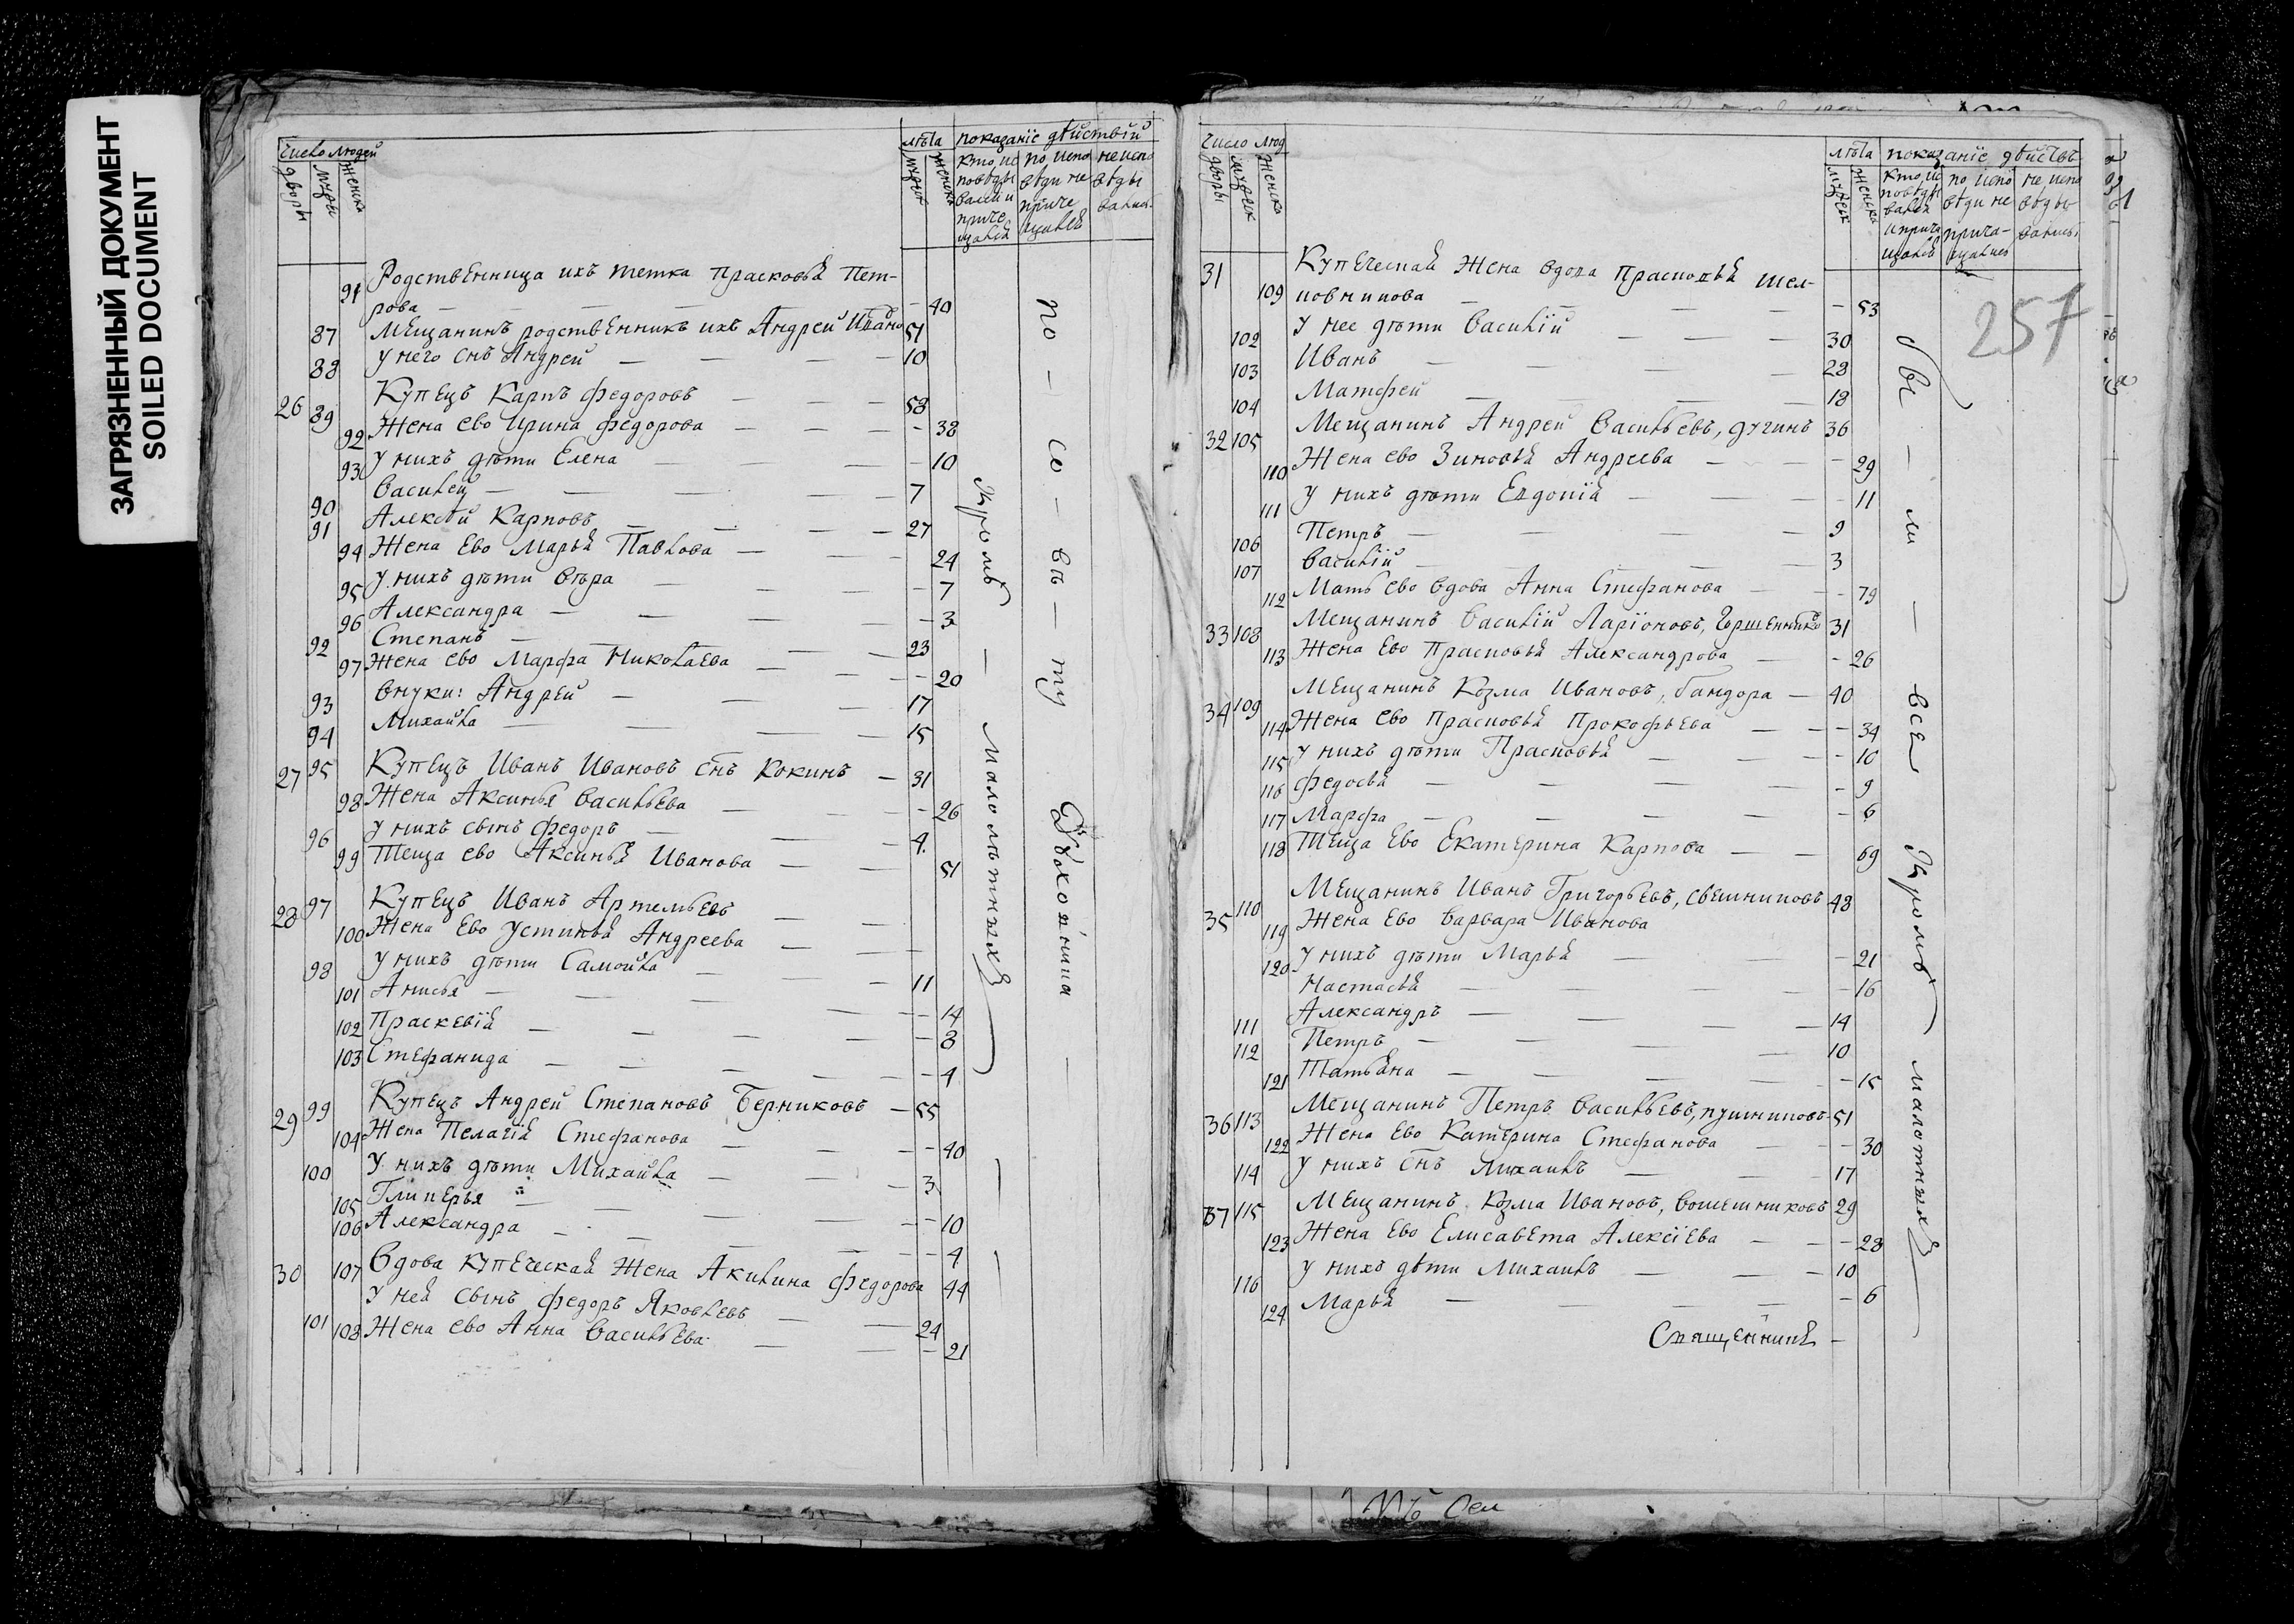 ЗАГРЯЗНЕННЫЙ ДОКУМЕНТ
SOILED DOCUMENT
число людей
дворы
мужы
женскъ
лѣта
мужск
женск
показанїе дѣйствїй
кто, ис поведы вался и приче щался
по испо вѣди не приче щался
не испо вѣды вались
91 Родственница ихъ тетка Прасковья Пет-
рова — 40
87 Мещанинъ родственникъ ихъ Андрей Ивано 51
88 У него снъ Андрей — 10
26 89 Купецъ Карпъ Федоровъ — 58
92 Жена ево Ирина Федорова — 38
93 У нихъ дѣти Елена — 10
90 Василей — 7
91 Алексѣй Карповъ — 27
94 Жена ево Марья Павлова — 24
95 У нихъ дѣти Вѣра — 7
96 Александра — 3
92 Степанъ — 23
97 Жена ево Марфа Николаева — 20
93 Внуки: Андрей — 17
94 Михайла — 15
27 95 Купецъ Иванъ Ивановъ снъ Кокинъ — 31
98 Жена Аксинья Васильева — 26
96 У нихъ сынъ Федоръ — 4
99 Теща ево Аксинья Иванова — 51
28 97 Купецъ Иванъ Артемьевъ —
100 Жена ево Устинья Андреева —
98 У нихъ дѣти Самойла — 11
101 Анисья — 14
102 Праскевїя — 8
103 Стефанида — 4
29 99 Купецъ Андрей Степановъ Берниковъ — 55
104 Жена Пелагїя Стефанова — 40
100 У нихъ дѣти Михайла — 3
105 Гликерья — 10
106 Александра — 4
30 107 Вдова купеческая жена Акилина Федорова 44
101 У ней сынъ Федоръ Яковлевъ — 24
108 Жена ево Анна Васильева — 21
кромѣ — малолѣтныхъ
по — со — въ — ту
число люд
дворы
мужск
женскъ
лѣта
мужеск
женска
показанїе дѣйствъ
кто, ис повѣды вался и прича щался
по испо вѣди не прича- щались
не испо вѣды вались
257
31 109 Купеческая жена вдова Прасковья Шел-
ковникова — 53
102 У нее дѣти Василїй — 30
103 Иванъ — 28
104 Матфей — 18
32 105 Мещанинъ Андрей Васильевъ, Дугинъ 36
110 Жена ево Зиновья Андреева — 29
111 У нихъ дѣти Евдокїя — 11
106 Петръ — 9
107 Василїй — 3
112 Мать ево вдова Анна Стефанова — 79
33 108 Мещанинъ Василїй Ларїоновъ, 31
113 Жена ево Прасковья Александрова — 26
34 109 Мещанинъ Козма Ивановъ, Бандора — 40
114 Жена ево Прасковья Прокофьева — 34
115 У нихъ дѣти Прасковья — 10
116 Федосья — 9
117 Марфа — 6
118 Теща ево Екатерина Карпова — 69
35 110 Мещанинъ Иванъ Григорьевъ, Свешниковъ 48
119 Жена ево Варвара Иванова
120 У нихъ дѣти Марья — 21
Настасья — 16
111 Александръ — 14
112 Петръ — 10
121 Татьяна — 15
36 113 Мещанинъ Петръ Васильевъ, Пушниковъ 51
122 Жена ево Катерина Стефанова — 30
114 У нихъ снъ Михаилъ — 17
37 115 Мещанинъ Козма Ивановъ, Вошешниковъ 29
123 Жена ево Елисавета Алексїева — 28
116 У нихъ дѣти Михаилъ — 10
124 Марья — 6
Священникъ —
бы — ли — все кромѣ малолѣтныхъ